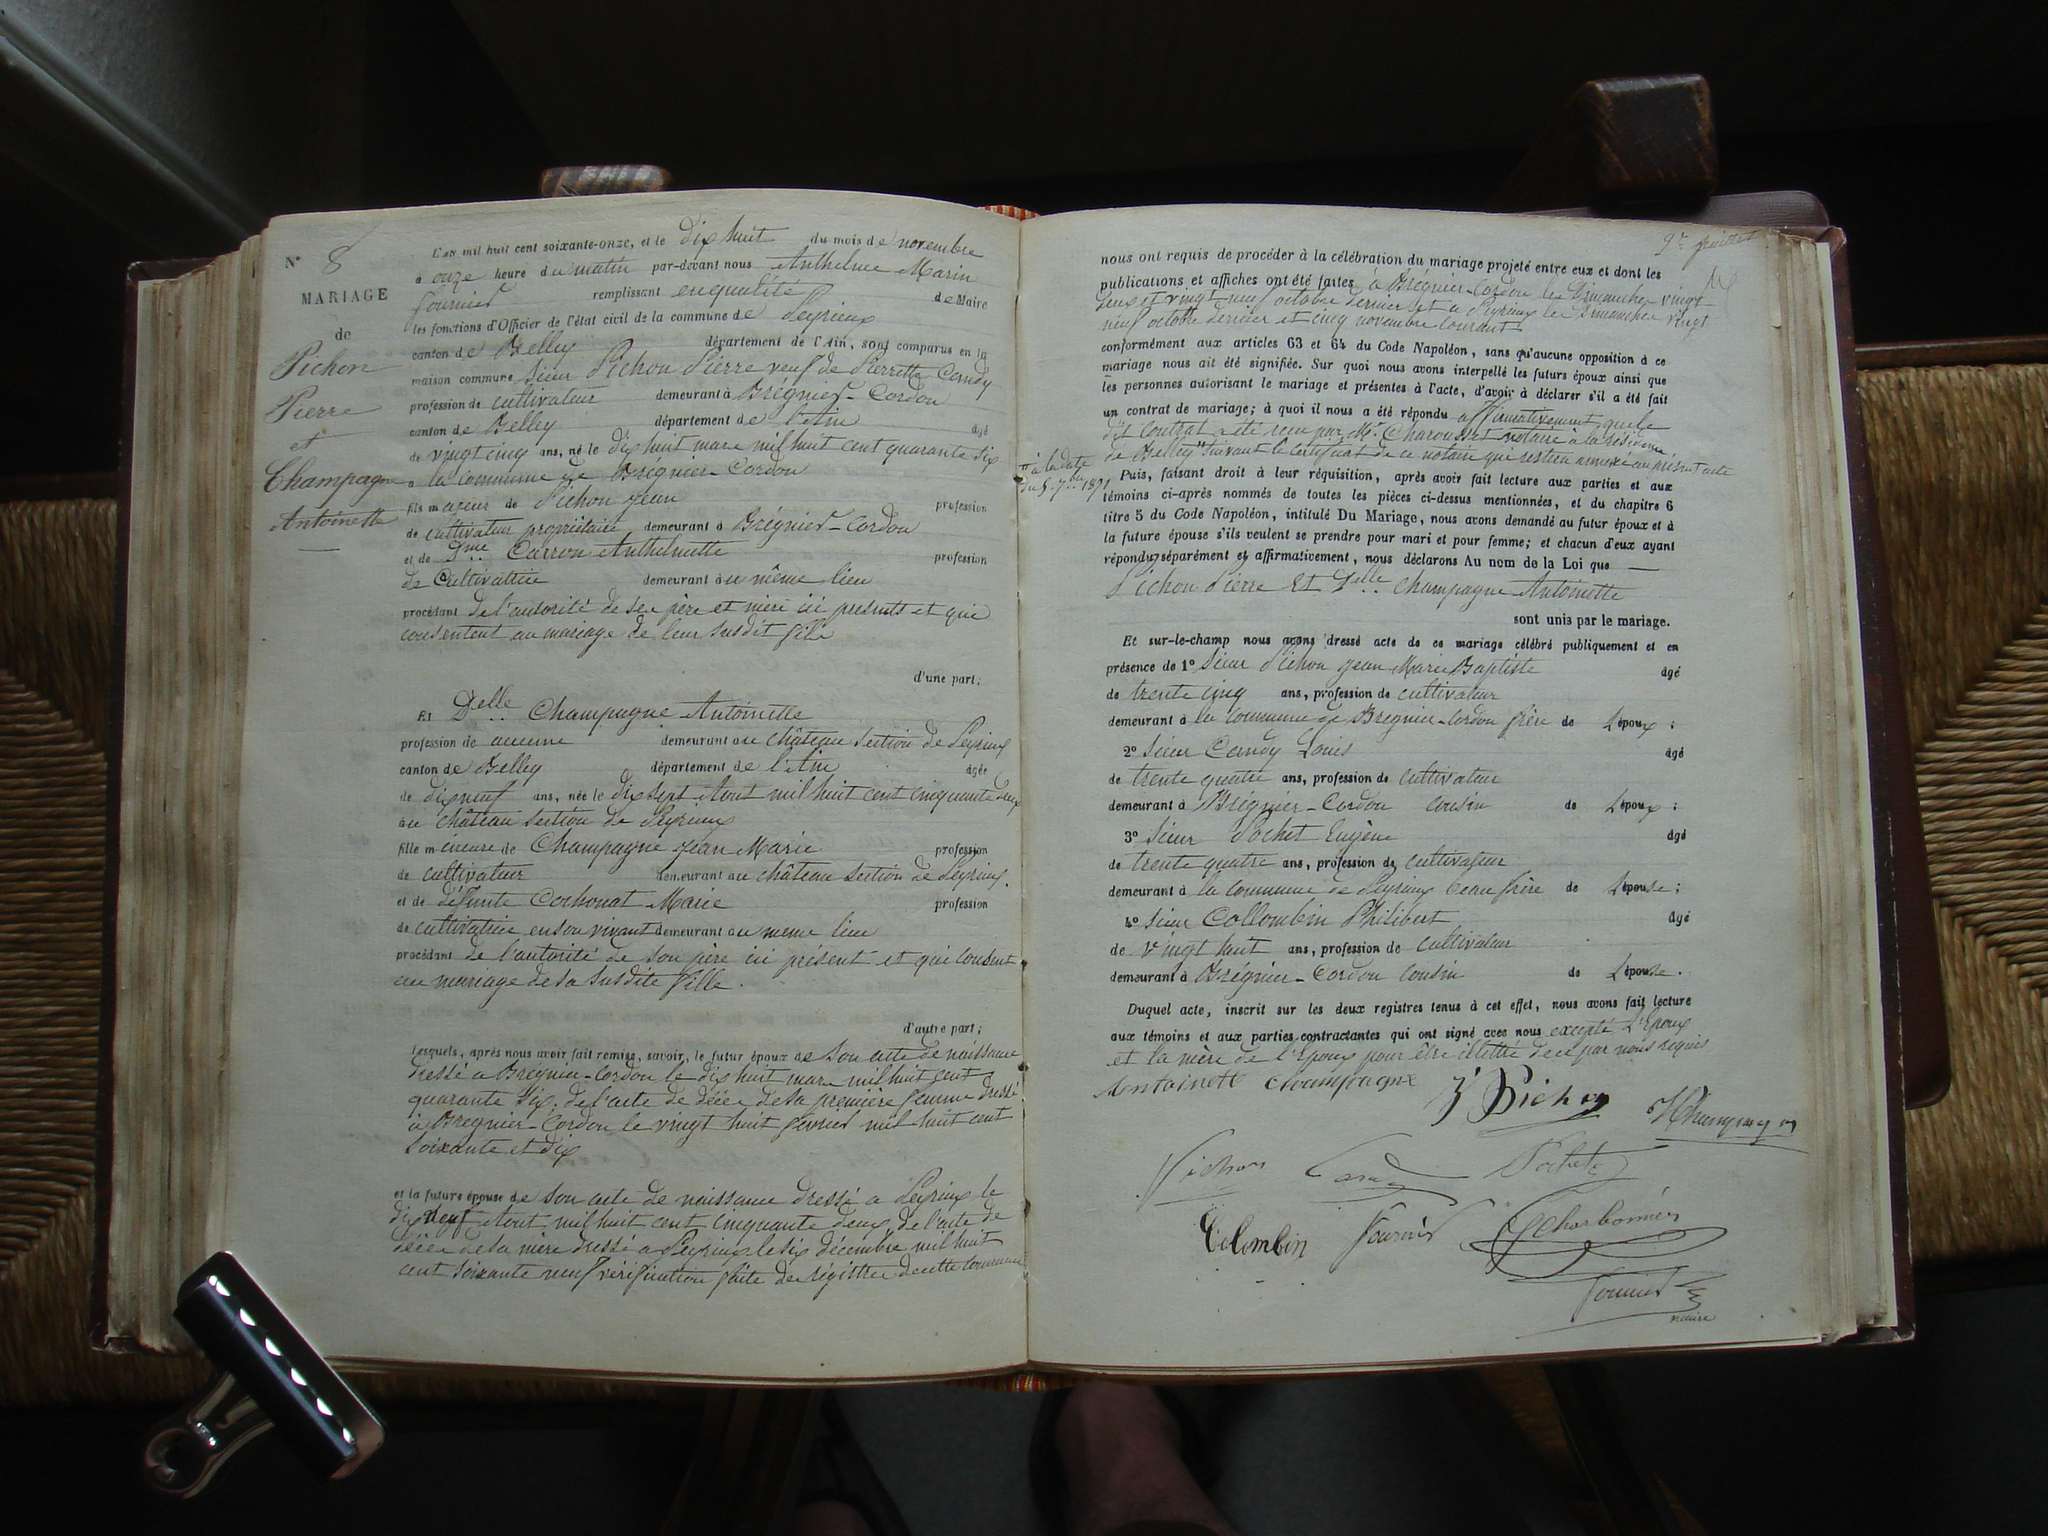 N° 8
MARIAGE
de
Pichon
Pierre
et
Champagne
Antoinette
L'an mil huit cent soixante-onze, et le dix huit du mois de novembre
à onze heure du matin par-devant nous Anthelme Marin
Fournier remplissant en qualité de Maire
les fonctions d'Officier de l'état civil de la commune de Peyrieux
canton de Belley département de l'Ain, sont comparus en la
maison commune Sieur Pichon Pierre veuf de Pierrette Candy
profession de cultivateur demeurant à Brégnier-Cordon
canton de Belley département de l'Ain âgé
de vingt cinq ans, né le dix huit mars mil huit cent quarante six
à la commune de Brégnier-Cordon
fils majeur de Pichon Jean profession
de cultivateur propriétaire demeurant à Brégnier-Cordon
et de Dme Carron Anthelmette profession
de Cultivatrice demeurant au même lieu
procédant de l'autorité de ses père et mère ici présents et qui
consentent au mariage de leur susdit fils
d'une part;
Et Delle Champagne Antoinette
profession de aucune demeurant au château section de Peyrieux
canton de Belley département de l'Ain âgée
de dix neuf ans, née le dix sept Aout mil huit cent cinquante deux
au château section de Peyrieux
fille mineure de Champagne Jean Marie profession
de cultivateur demeurant au château section de Peyrieux.
et de défunte Cochonat Marie profession
de cultivatrice en son vivant demeurant au même lieu
procédant de l'autorité de son père ici présent et qui consent
au mariage de sa susdite fille.
d'autre part;
Lesquels, après nous avoir fait remise, savoir, le futur époux de son acte de naissance
dressé a Brégnier-Cordon le dix huit mars mil huit cent
quarante six. de l'acte de décès de sa première femme dressé
à Brégnier-Cordon le vingt huit février mil huit cent
soixante et dix
et la future épouse de son acte de naissance dressé a Peyrieux le
dix neuf Aout mil huit cent cinquante deux, de l'acte de
décès de sa mère dressé a Peyrieux le six décembre mil huit
cent soixante neuf vérification faite des registres de cette commune
9e feuillet
nous ont requis de procéder à la célébration du mariage projeté entre eux et dont les
publications et affiches ont été faites à Brégnier-Cordon les Dimanches vingt
deux et vingt neuf octobre dernier et a Peyrieux les Dimanches vingt
neuf octobre dernier et cinq novembre courant
conformément aux articles 63 et 64 du Code Napoléon, sans qu'aucune opposition à ce
mariage nous ait été signifiée. Sur quoi nous avons interpellé les futurs époux ainsi que
les personnes autorisant le mariage et présentes à l'acte, d'avoir à déclarer s'il a été fait
un contrat de mariage; à quoi il nous a été répondu affirmativement que le
dit contrat a été reçu par Me notaire à la résidence
de Belley suivant le certificat de ce notaire qui restera annexé au présent acte
à la date
du 5 7bre 1871
Puis, faisant droit à leur réquisition, après avoir fait lecture aux parties et aux
témoins ci-après nommés de toutes les pièces ci-dessus mentionnées, et du chapitre 6
titre 5 du Code Napoléon, intitulé Du Mariage, nous avons demandé au futur époux et à
la future épouse s'ils veulent se prendre pour mari et pour femme; et chacun d'eux ayant
répondu, séparément et affirmativement, nous déclarons Au nom de la Loi que
Pichon Pierre Et Delle Champagne Antoinette
sont unis par le mariage.
Et sur-le-champ nous avons dressé acte de ce mariage célébré publiquement et en
présence de 1° Sieur Pichon Jean Marie Baptiste âgé
de trente cinq ans, profession de cultivateur
demeurant à la commune de Brégnier-Cordon frère de L'époux;
2° Sieur Candy Louis âgé
de trente quatre ans, profession de cultivateur
demeurant à Brégnier-Cordon cousin de L'époux;
3° Sieur Pochet Eugène âgé
de trente quatre ans, profession de cultivateur
demeurant à la commune de Peyrieux beau frère de L'épouse;
4° Sieur Collombin Philibert âgé
de vingt huit ans, profession de cultivateur
demeurant à Brégnier-Cordon cousin de L'épouse.
Duquel acte, inscrit sur les deux registres tenus à cet effet, nous avons fait lecture
aux témoins et aux parties contractantes qui ont signé avec nous excepté L'Epoux
et la mère de l'Epoux pour être illettré de ce par nous requis
Antoinette Champagne J Pichon Champagne
Pichon Candy Pochet
Colombin Fournier Charbonnier
Fournier
maire